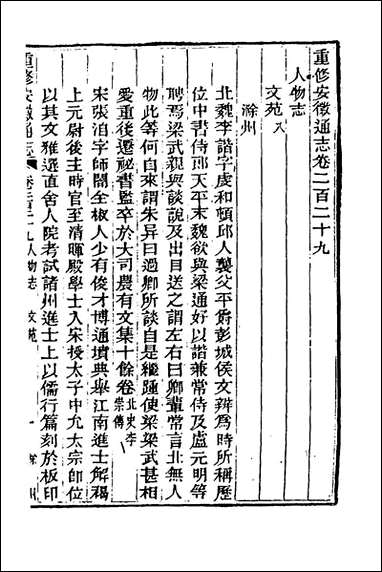 重修安徽通志卷二百二十九
人物志
文苑八
滁州
北魏李諧字虔和頓邱人襲父平爵彭城侯文辨爲時所稱歷
位中書侍郎天平末魏欲與梁通好以諧兼常侍及盧元明等
聘焉梁武親與談說及出目送之謂左右曰卿輩常言北無人
物此等何自來謂朱异曰過卿所談自是繼踵使梁梁武甚相
愛重後遷祕書監卒於大司農有文集十餘卷北史李崇傳
宋張洎字師闇全椒人少有俊才博通墳典舉江南進士解褐
上元尉後主時官至清暉殿學士入宋授太子中允太宗即位
以其文雅選直舍人院考試諸州進士上以儒行篇刻於板印
重修安徽通志 卷二百二十九 人物志 文苑 一